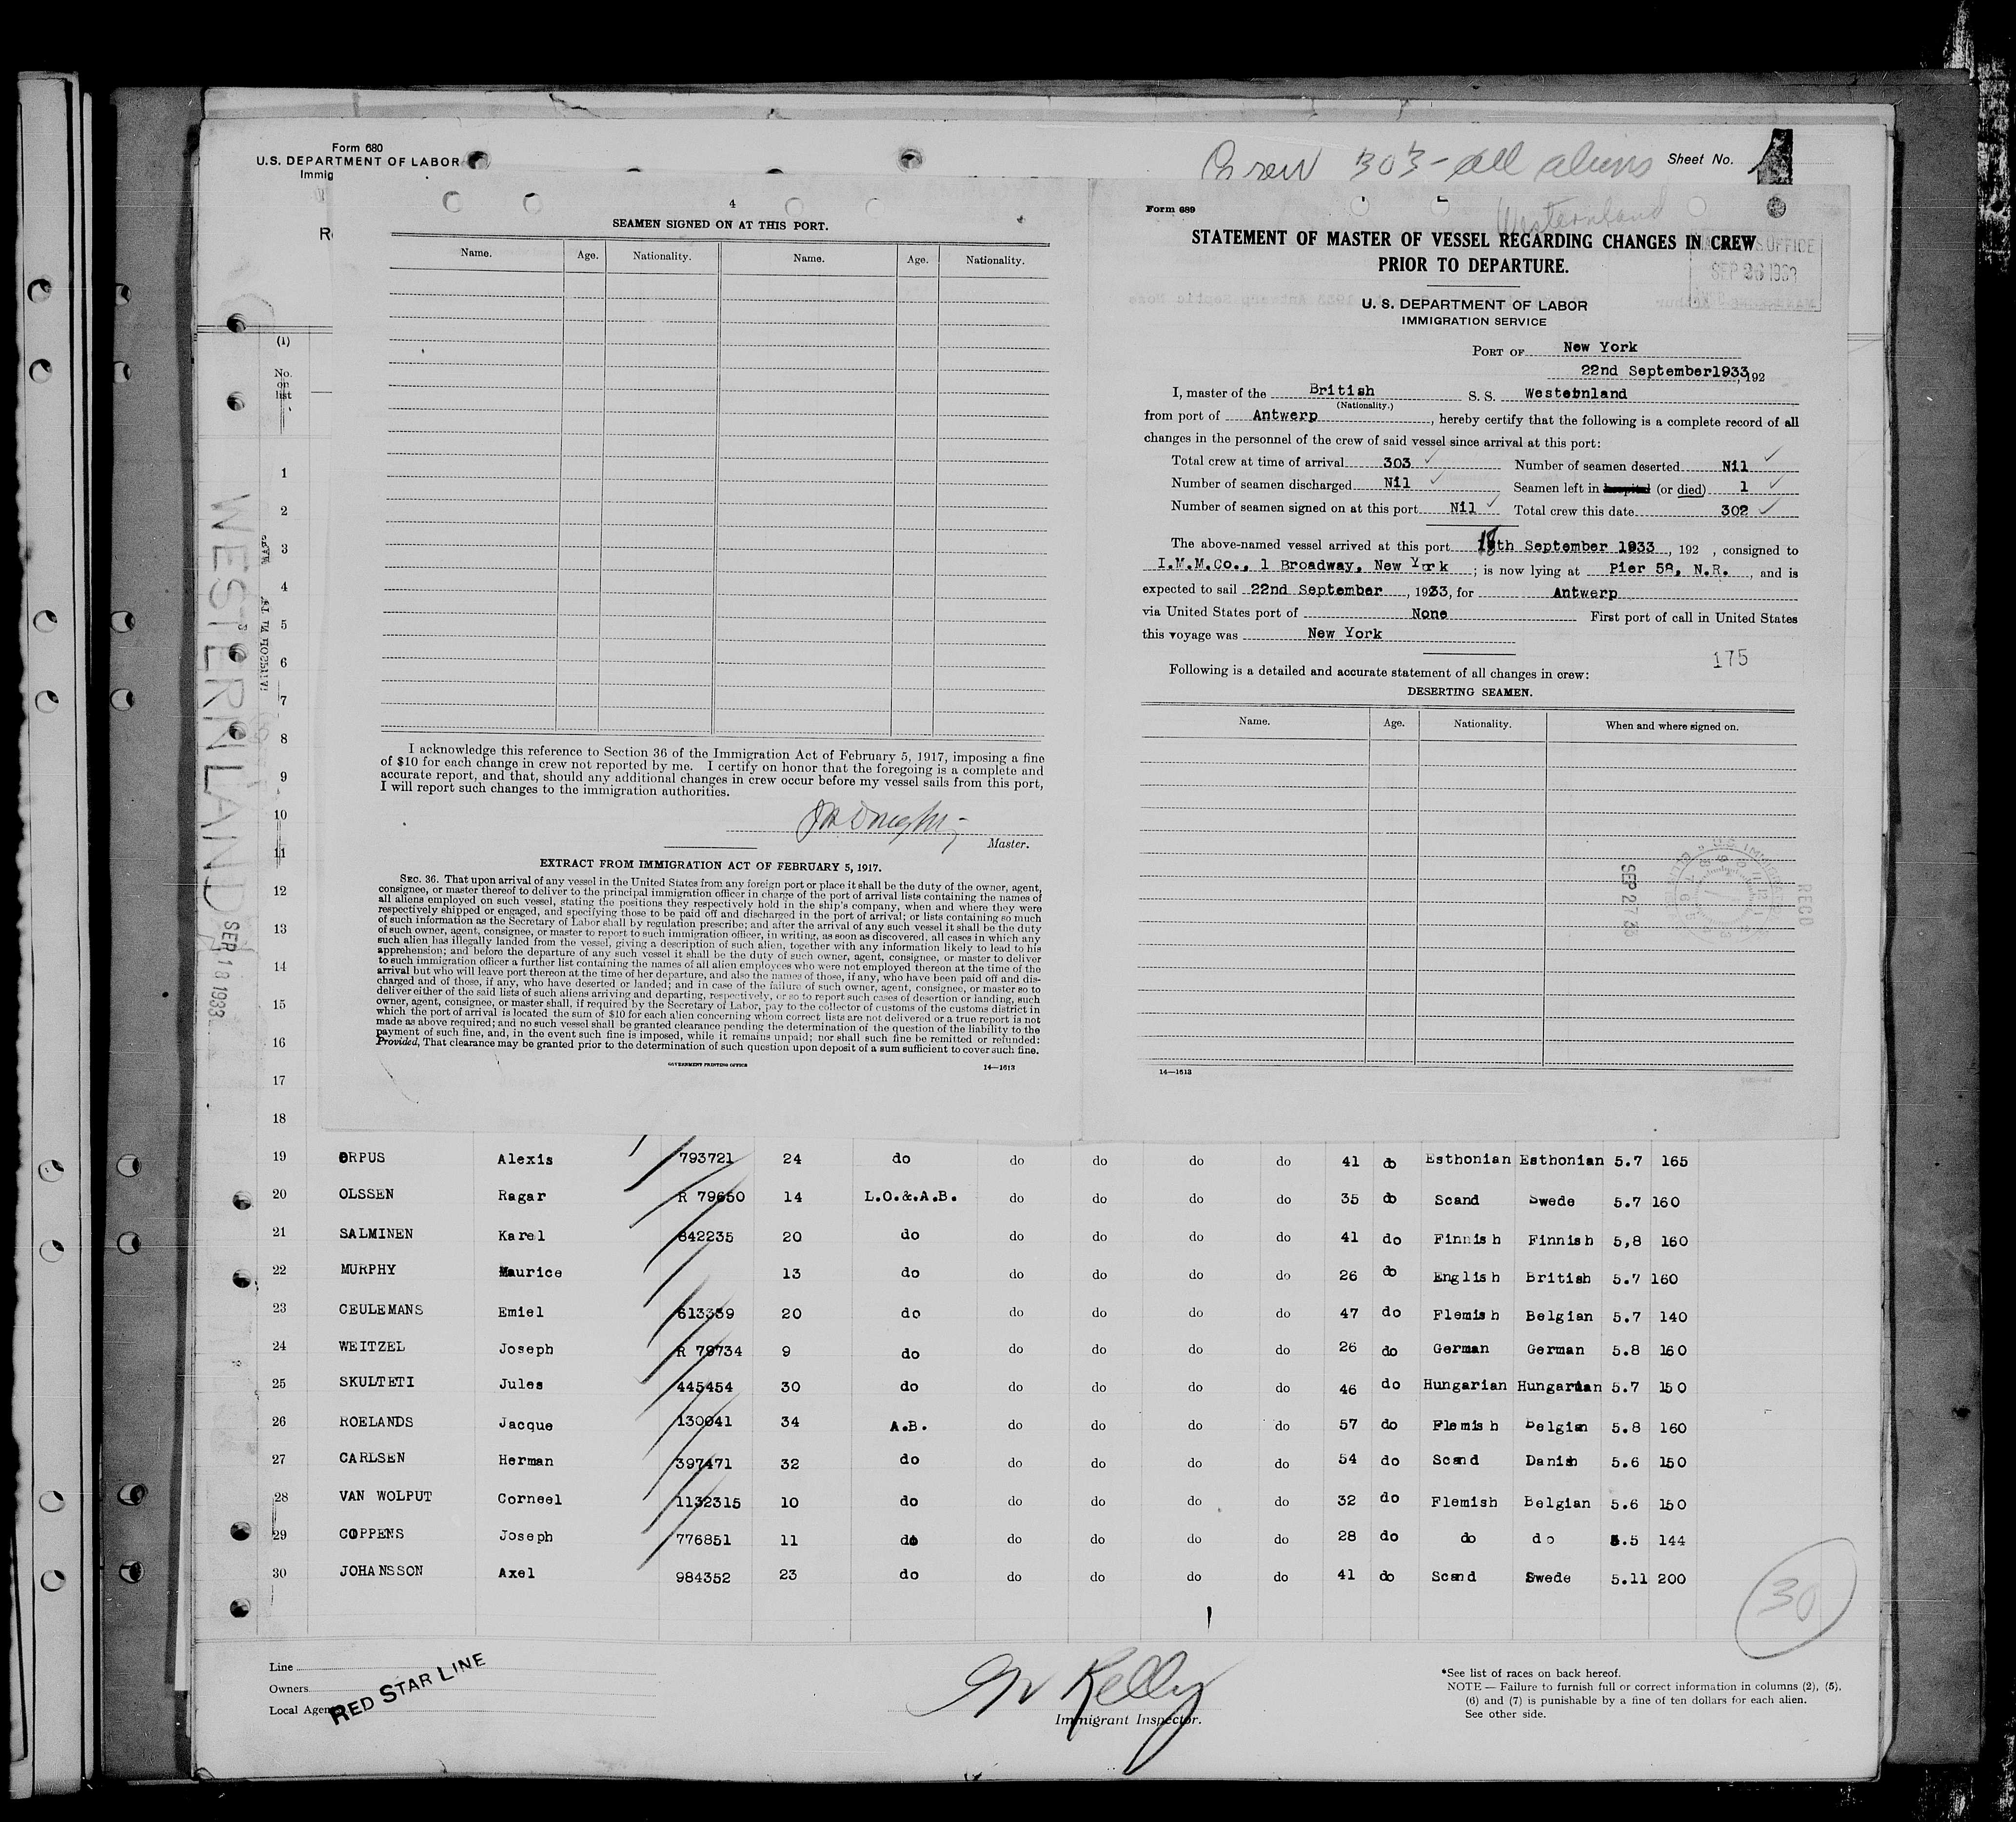 Form 680
U.S. DEPARTMENT OF LABOR
Immig
Crew 303 - all aliens
Sheet No.
(1)
No.
on
list
WESTERNLAND
SEP 18 1933
4
SEAMEN SIGNED ON AT THIS PORT.
Name. Age. Nationality. Name. Age. Nationality.
I acknowledge this reference to Section 36 of the Immigration Act of February 5, 1917, imposing a fine
of $10 for each change in crew not reported by me. I certify on honor that the foregoing is a complete and
accurate report, and that, should any additional changes in crew occur before my vessel sails from this port,
I will report such changes to the immigration authorities.
Master.
EXTRACT FROM IMMIGRATION ACT OF FEBRUARY 5, 1917.
SEC. 36. That upon arrival of any vessel in the United States from any foreign port or place it shall be the duty of the owner, agent,
consignee, or master thereof to deliver to the principal immigration officer in charge of the port of arrival lists containing the names of
all aliens employed on such vessel, stating the positions they respectively hold in the ship's company, when and where they were
respectively shipped or engaged, and specifying those to be paid off and discharged in the port of arrival; or lists containing so much
of such information as the Secretary of Labor shall by regulation prescribe; and after the arrival of any such vessel it shall be the duty
of such owner, agent, consignee, or master to report to such immigration officer, in writing, as soon as discovered, all cases in which any
such alien has illegally landed from the vessel, giving a description of such alien, together with any information likely to lead to his
apprehension; and before the departure of any such vessel it shall be the duty of such owner, agent, consignee, or master to deliver
to such immigration officer a further list containing the names of all alien employees who were not employed thereon at the time of the
arrival but who will leave port thereon at the time of her departure, and also the names of those, if any, who have been paid off and dis-
charged and of those, if any, who have deserted or landed; and in case of the failure of such owner, agent, consignee, or master so to
deliver either of the said lists of such aliens arriving and departing, respectively, or so to report such cases of desertion or landing, such
owner, agent, consignee, or master shall, if required by the Secretary of Labor, pay to the collector of customs of the customs district in
which the port of arrival is located the sum of $10 for each alien concerning whom correct lists are not delivered or a true report is not
made as above required; and no such vessel shall be granted clearance pending the determination of the question of the liability to the
payment of such fine, and, in the event such fine is imposed, while it remains unpaid; nor shall such fine be remitted or refunded:
Provided, That clearance may be granted prior to the determination of such question upon deposit of a sum sufficient to cover such fine.
GOVERNMENT PRINTING OFFICE 14—1613
Form 689
Westernland
STATEMENT OF MASTER OF VESSEL REGARDING CHANGES IN CREW
PRIOR TO DEPARTURE.
OFFICE
SEP 26 1933
U. S. DEPARTMENT OF LABOR
IMMIGRATION SERVICE
PORT OF New York
22nd September1933, 192
I, master of the British S. S. Westebnland
(Nationality.)
from port of Antwerp, hereby certify that the following is a complete record of all
changes in the personnel of the crew of said vessel since arrival at this port:
Total crew at time of arrival 303 Number of seamen deserted Nil
Number of seamen discharged Nil Seamen left in hospital (or died) 1
Number of seamen signed on at this port Nil Total crew this date 302
The above-named vessel arrived at this port 18th September 1933, 192 , consigned to
I.M.M.Co., 1 Broadway, New York ; is now lying at Pier 58, N.R. , and is
expected to sail 22nd September, 1933, for Antwerp
via United States port of None First port of call in United States
this voyage was New York
175
Following is a detailed and accurate statement of all changes in crew:
DESERTING SEAMEN.
Name. Age. Nationality. When and where signed on.
SEP 27 33
RECD
14—1613
1
2
3
4
5
6
7
8
9
10
11
12
13
14
15
16
17
18
19 ORPUS Alexis 793721 24 do do do do do 41 do Esthonian Esthonian 5.7 165
20 OLSSEN Ragar R 79650 14 L.O.&.A.B. do do do do 35 do Scand Swede 5.7 160
21 SALMINEN Karel 642235 20 do do do do do 41 do Finnish Finnish 5,8 160
22 MURPHY Maurice 13 do do do do do 26 do English British 5.7 160
23 CEULEMANS Emiel 613339 20 do do do do do 47 do Flemish Belgian 5.7 140
24 WEITZEL Joseph R 79734 9 do do do do do 26 do German German 5.8 160
25 SKULTETI Jules 445454 30 do do do do do 46 do Hungarian Hungarian 5.7 150
26 ROELANDS Jacque 130041 34 A.B. do do do do 57 do Flemish Belgian 5.8 160
27 CARLSEN Herman 397471 32 do do do do do 54 do Scand Danish 5.6 150
28 VAN WOLPUT Corneel 1132315 10 do do do do do 32 do Flemish Belgian 5.6 150
29 COPPENS Joseph 776851 11 do do do do do 28 do do do 5.5 144
30 JOHANSSON Axel 984352 23 do do do do do 41 do Scand Swede 5.11 200
30
Line
Owners
Local Agen
RED STAR LINE
Kelly
Immigrant Inspector.
*See list of races on back hereof.
NOTE — Failure to furnish full or correct information in columns (2), (5),
(6) and (7) is punishable by a fine of ten dollars for each alien.
See other side.